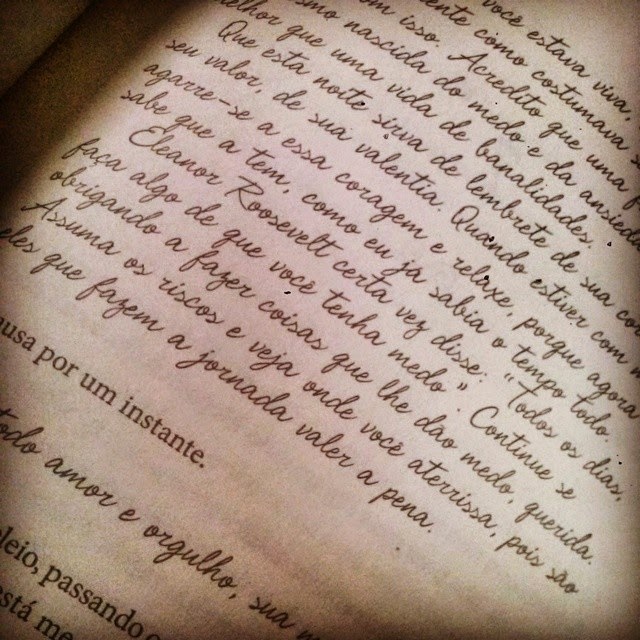 você estava viva,
ente como costumava
om isso. Acredito que uma
smo nascida do medo e da
elhor que uma vida de banalidades.
Que esta noite sirva de lembrete de sua
seu valor, de sua valentia. Quando estiver com
agarre-se a essa coragem e relaxe, porque agora
sabe que a tem, como eu já sabia o tempo todo.
Eleanor Roosevelt certa vez disse: "Todos os dias,
faça algo de que você tenha medo". Continue se
obrigando a fazer coisas que lhe dão medo, querida.
Assuma os riscos e veja onde você aterrissa, pois são
eles que fazem a jornada valer a pena.
usa por um instante.
todo amor e orgulho, sua
leio, passando
stá me